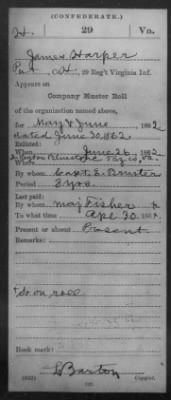 (CONFEDERATE.)
H. 29 Va.
James Harper
Pvt, Co. H, 29 Reg't Virginia Inf.
Appears on
Company Muster Roll
of the organization named above,
for May & June, 1862.
dated June 30, 1862
Enlisted:
When June 26, 1862
Where
By whom Capt. E. Bruster
Period 3 yrs.
Last paid:
By whom Maj Fisher
To what time Apl 30, 186
Present or absent Present
Remarks:
* So on roll
Book mark:
Barton
(642) Copyist.